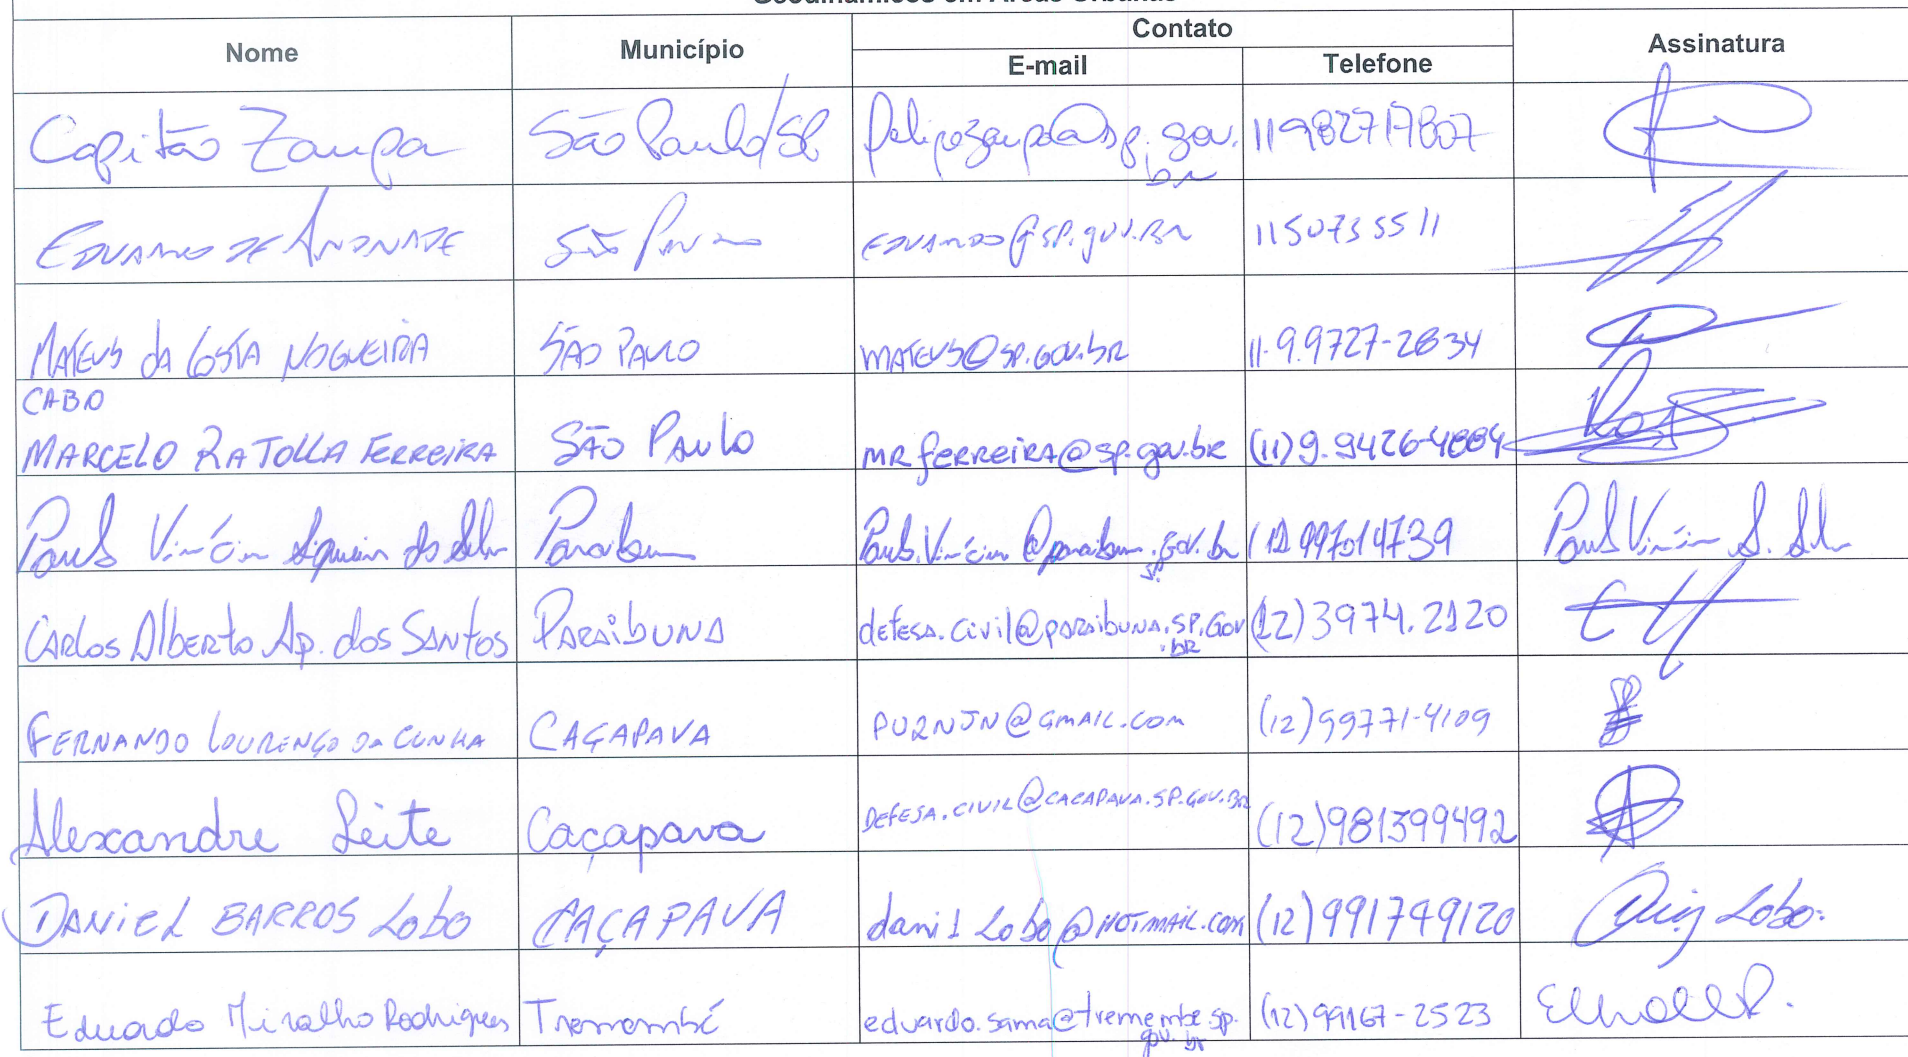 Nome Município Contato Assinatura
E-mail Telefone
Capitão Zaupa São Paulo/SP felipezaupa@sp.gov.br 11982717807
EDUARDO DE ANDRADE São Paulo EDUARDO@SP.gov.BR 1150735511
MATEUS da COSTA NOGUEIRA SÃO PAULO MATEUS@SP.GOV.br 11-9.9727-2834
CABO
MARCELO RATOLLA FERREIRA SÃO PAulo MRferreira@sp.gov.br (11)9.9426-4884
Paulo Vinícius Siqueira da Silva Paraibuna Paulo.Vinícius@paraibuna.sp.Gov.br (12 997014739 Paulo Vinícius S. Silva
CARlos AlbERto Ap. dos SANtos PARAibUNA defesa.civil@paraibuna.SP.Gov.bR (12)3974.2120
FERNANDO LOURENÇO DA CUNHA CAÇAPAVA PU2NJN@GMAIL.COM (12)99771-4109
Alexandre Leite Caçapava DEFESA.CIVIL@CACAPAVA.SP.GOV.BR (12)981399492
DANiEL BARROS Lobo CAÇAPAVA Lobo@HOTMAIL.com (12)991749120 Lobo
Eduardo Miralho Rodrigues Tremembé eduardo.sama@tremembe.sp.gov.br (12)99167-2523